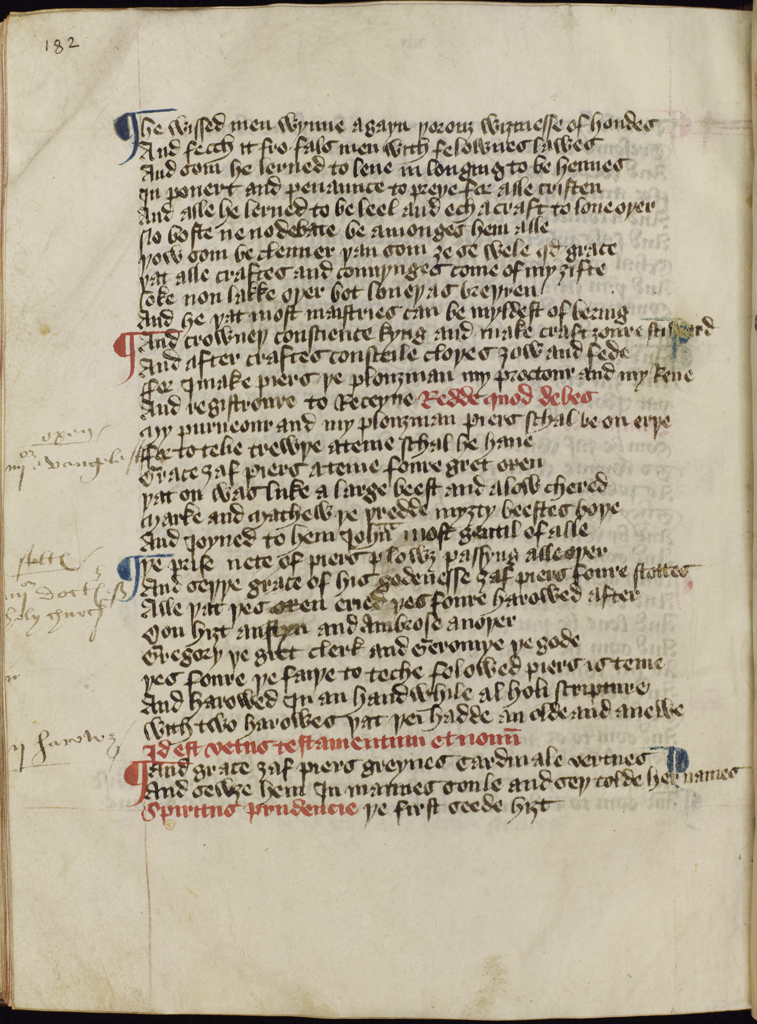 182
He wissed men wynne agayn þorouȝ wiȝtnesse of hondes
And fecch it fro fals men with felownes lawes
And som he lerned to lene in longing to be hennes
In pouert and penaunce to preye for alle cristen
And alle he lerned to be leel and ech a craft to loue oþer
No boste ne no debate be amonges hem alle
Þow som be clenner þan som ȝe se wele qd grace
Þat alle craftes and connynges come of my ȝifte
Loke non lakke oþer bot loueþ as breþren
And he þat most maistries can be myldest of bering
And crowneþ conscience kyng and make craft ȝoure stiward
And after craftes conseile cloþes ȝow and fede
For I make piers þe plouȝman my proctour and my Reue
And registroure to Receyue Redde quod debes
My purueour and my plouȝman piers schal be on erþe
oxen
For to telie trewþe a teme schal he haue
iiij or evangelist
Grace ȝaf piers a teme foure gret oxen
Þat on was luke a large beest and a low chered
Marke and Mathew þe þredde myȝty beestes boþe
And Joyned to hem Johan most gentil of alle
Þe pris nete of piers plowȝ passyng alle oþer
stotte
And seþþe grace of his godenesse ȝaf piers foure stottes
iiij or doct
Alle þat þes oxen eried þes foure harowed after
holy church
Oon hiȝt austyn and ambrose anoþer
Gregory þe gret clerk and Geromye þe gode
Þes foure þe faiþe to teche folowed piers is teme
And harowed In an handwhile al holi scripture
With two harowes þat þei hadde an olde and a newe
ij harowȝ
Id est vetus testamentum et nouum
And grace ȝaf piers greynes cardinale vertues
And sewȝe hem In mannes soule and sey tolde her names
Spiritus prudencie þe first seede hiȝt